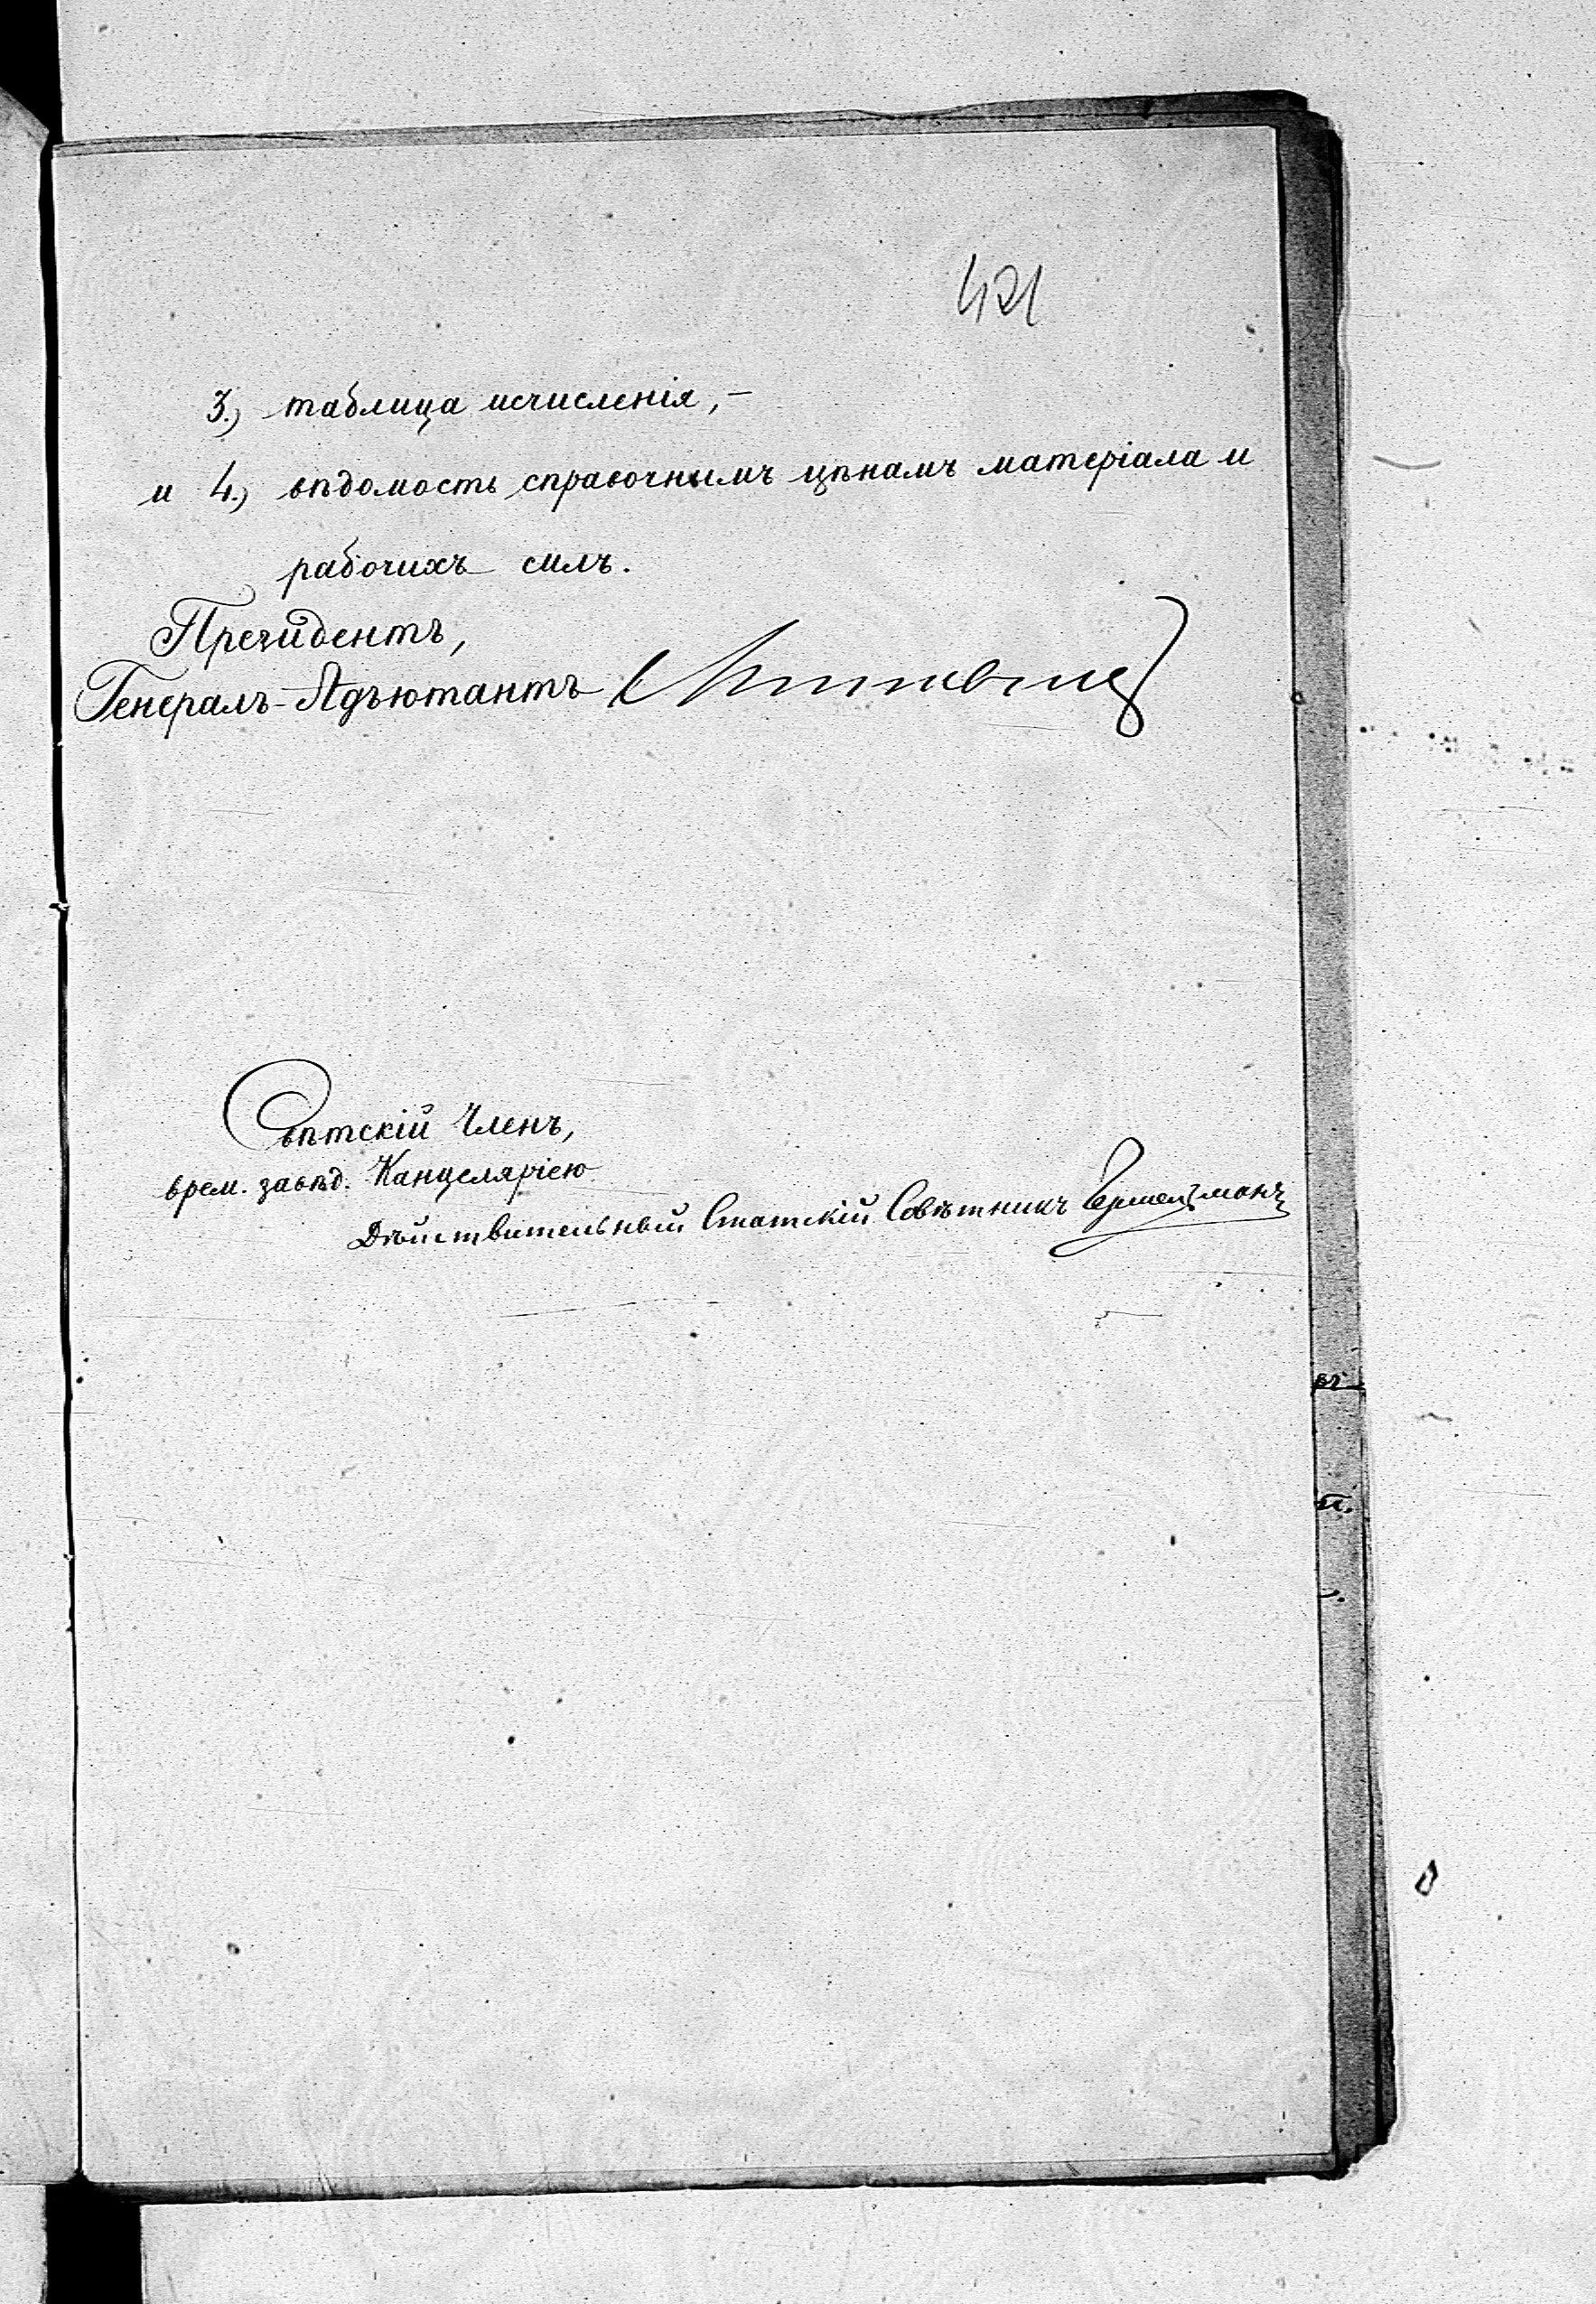 421
3.) таблица исчисленія,-
и 4.) вѣдомость справочнымъ цѣнамъ матеріала и
рабочихъ силъ.
Президентъ,
Генералъ-Адъютантъ
Свѣтскій Членъ,
врем. завѣд. Канцеляріею
Дѣйствительный Статскій Совѣтникъ